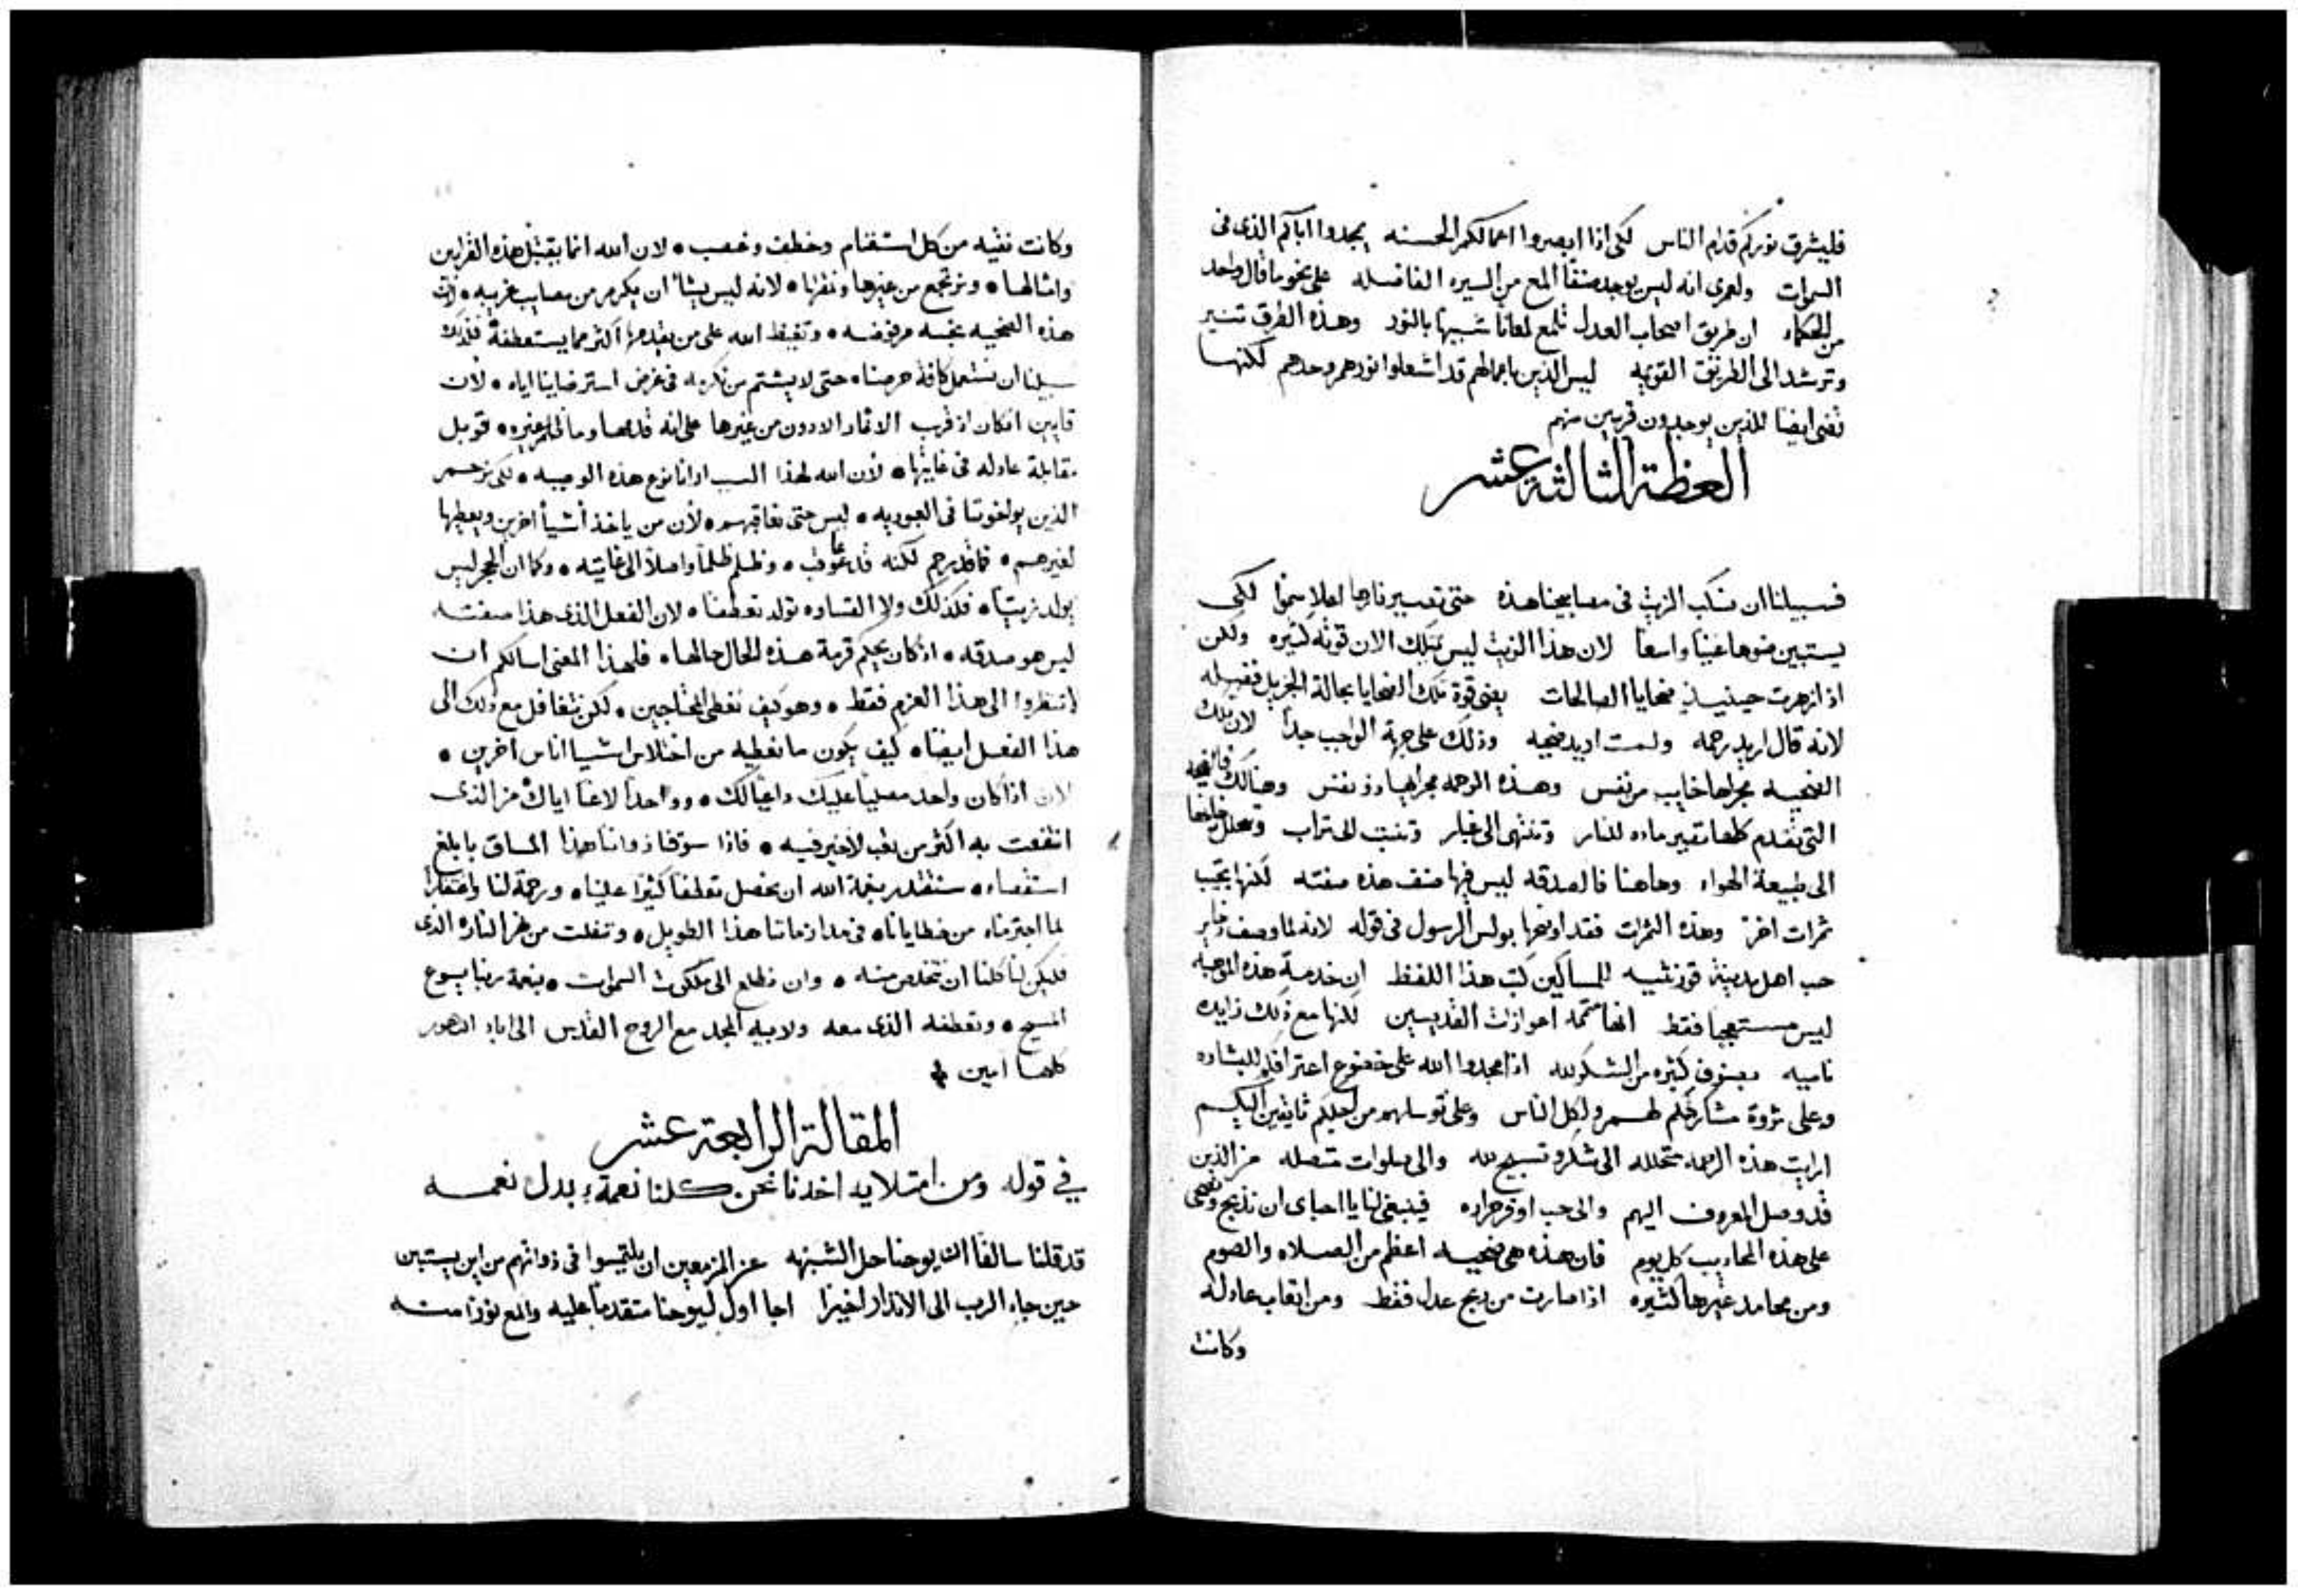 فليشرق نوركم قدام الناس لكى اذا ابصروا اعمالكم الحسنه يمجدوا اباكم الذى فى
السموات ولعمرى انه ليس يوجد صنفا المع من السيره الفاضله على نحو ما قال واحد
من الحكماء ان طريق اصحاب العدل تلمع لمعانا شبيها بالنور وهذه الطرق تنير
وترشد الى الطريق القويه ليس الذين باعمالهم قد اشعلوا نورهم وحدهم لكنها
تضى ايضا للذين يوجدون قريبين منهم
العظة الثالثة عشر
فسبيلنا ان نسكب الزيت فى مصابيحنا هذه حتى تصير نارها اعلا سموا لكى
يستبين ضوها غنيا واسعا لان هذا الزيت ليس يمتلك الان قوته كثيره ولكن
اذ ازهرت حينيذ ضحايا الصالحات يعنى قوة تلك الضحايا بحالة الجزيل فضيله
لانه قال اريد رحمه ولست اريد ضحيه وذلك على جهة الواجب جدا لان تلك
الضحيه مجراها خايب من نفس وهذه الرحمه مجراها ذو نفس وهنالك فالضحيه
التى تقدم كلها تصير ماده للنار وتنتهى الى غبار وتنبت الى تراب وتتحلل
الى طبيعة الهواء وهاهنا فالصدقه ليس فيها صنف هذه صفته لكنها تجيب
ثمرات اخر وهذه الثمرات فقد اوضحها بولس الرسول فى قوله لانه لما وصف
حب اهل مدينة قورنثيه للمساكين كتب هذا اللفظ ان خدمة هذه الموهبه
ليس فقط انها متممه اعوازات القديسين لكنها مع ذلك زايده
ناميه بصنوف كثيره من الشكر لله اذ امجدوا الله على خضوع اعترافكم للبشاره
وعلى ثروة مشاركتكم لهم ولكل الناس وعلى توسلهم من اجلكم تايقين اليكم
ارايت هذه الرحمه متحلله الى شكر وتسبيح لله والى صلوات متصله من الذين
قد وصل المعروف اليهم والى حب اوفر حراره فينبغى لنا يا احباى ان نذبح
على هذه المحاريب كل يوم فان هذه هى ضحيه اعظم من الصلاه والصوم
ومن محامد غيرها كثيره اذا صارت من ربح عدل فقط ومن اتعاب عادله
وكانت
وكانت نقيه من كل استغنام وخطف وغصب لان الله انما يقتبل هذه القرابين
وامثالها ويرتجع من غيرها لانه ليس يشا ان يكرم من مصايب غريبه لان
هذه الضحيه نجسه مرفوضه وتغيظ الله على من يقدمها اكثر مما يستعطفه فلذلك
سبيلنا ان نستعمل كافة حرصنا حتى لا يشتم من نكرمه فى عرض استرضاينا اياه لان
قايين ان كان اذ قرب الاثمار الادون من غيرها على انه قوبل
مقابلة عادله فى غايتها لان الله لهذا السبب هذه الوصيه لكى نرحم
الذين يواخوننا فى العبوديه ليس حتى نعاقبهم لان من ياخذ اشيا اخرين ويعطيها
لغيرهم فما قد رحم لكنه قد عاقب وظلم ظلما واصلا الى غايته وكما ان الحجر ليس
يولد زيتا فكذلك ولا القساوه تولد تعطفا لان الفعل الذى هذا صفته
ليس هو صدقه اذ كان يحكم قرمة هذه الحال حالها فلهذا المعنى اسالكم ان
لا تنظروا الى هذا العزم فقط وهو كيف نعطى المحتاجين لكن نتغافل مع ذلك الى
هذا الفعل ايضا كيف يكون ما نعطيه من اختلاس اشيا اناس اخرين
لان اذا كان واحد مصليا عليك داعيا لك وواحدا لاعنا اياك من الذى
انتفعت به اكثر من تعب لاخير فيه فاذا سوقنا ذواتنا هذا المساق بابلغ
استقصاء سنقتدر بنعمة الله ان نحصل تعطفا كثيرا علينا ورحمة لنا واغتفارا
لما اجترمناه من خطايانا فى مدا زماننا هذا الطويل ونفلت من نهر النار الذى
فليكن لنا كلنا ان نتخلص منه وان نطلع الى ملكوت السموات بنعمة ربنا يسوع
المسيح وتعطفه الذى معه ولابيه المجد مع الروح القدس الى اباد الدهور
كلها امين
المقالة الرابعة عشر
في قوله ومن امتلايه اخدنا نحن كلنا نعمةً بدل نعمه
قد قلنا سالفا ان يوحنا حل الشبهه عن المزمعين ان يلتمسوا فى ذواتهم من اين يستبين
حين جاء الرب الى الانذار اخيرا اجا اول ليوحنا متقدما عليه والمع نورا منه